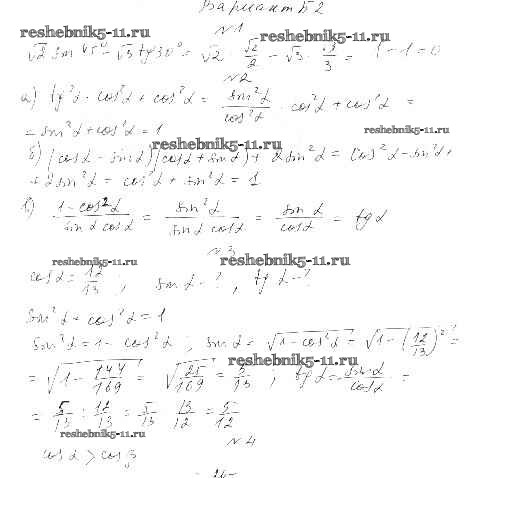 Вариант Б2
N1
reshebnik5-11.ru
reshebnik5-11.ru
√2 sin 45° - √3 tg 30° = √2 · √2/2 - √3 · √3/3 = 1 - 1 = 0
N2
а) tg²α · cos²α + cos²α = sin²α/cos²α · cos²α + cos²α =
= sin²α + cos²α = 1
reshebnik5-11.ru
reshebnik5-11.ru
б) (cosα - sinα)(cosα + sinα) + 2sin²α = cos²α - sin²α +
+ 2sin²α = cos²α + sin²α = 1
в) 1 - cos²α / sinα cosα = sin²α / sinα cosα = sinα / cosα = tgα
N3
reshebnik5-11.ru
reshebnik5-11.ru
cosα = 12/13 ; sinα - ? , tgα - ?
sin²α + cos²α = 1
sin²α = 1 - cos²α ; sinα = √(1 - cos²α) = √(1 - (12/13)²) =
= √(1 - 144/169) = √(25/169) = 5/13 ; tgα = sinα/cosα =
reshebnik5-11.ru
= 5/13 : 12/13 = 5/13 · 13/12 = 5/12
reshebnik5-11.ru
N4
cosα > cosβ
- 26 -